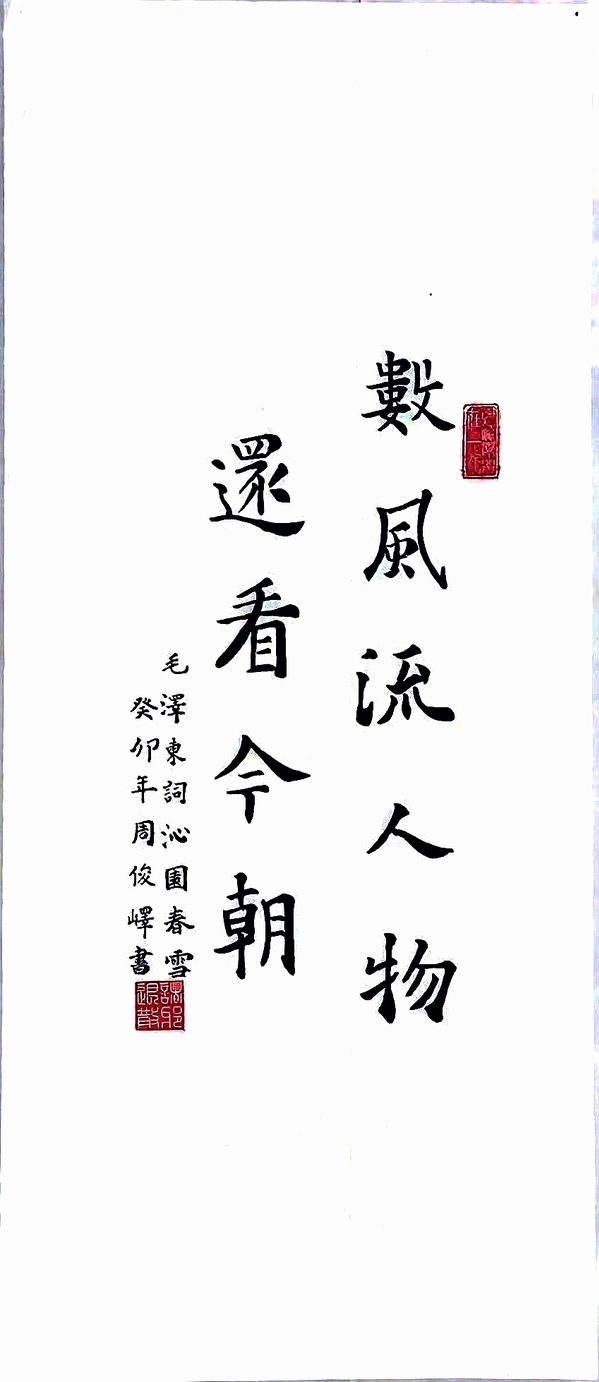 數風流人物
還看今朝
毛澤東詞沁園春雪
癸卯年周俊嶧書